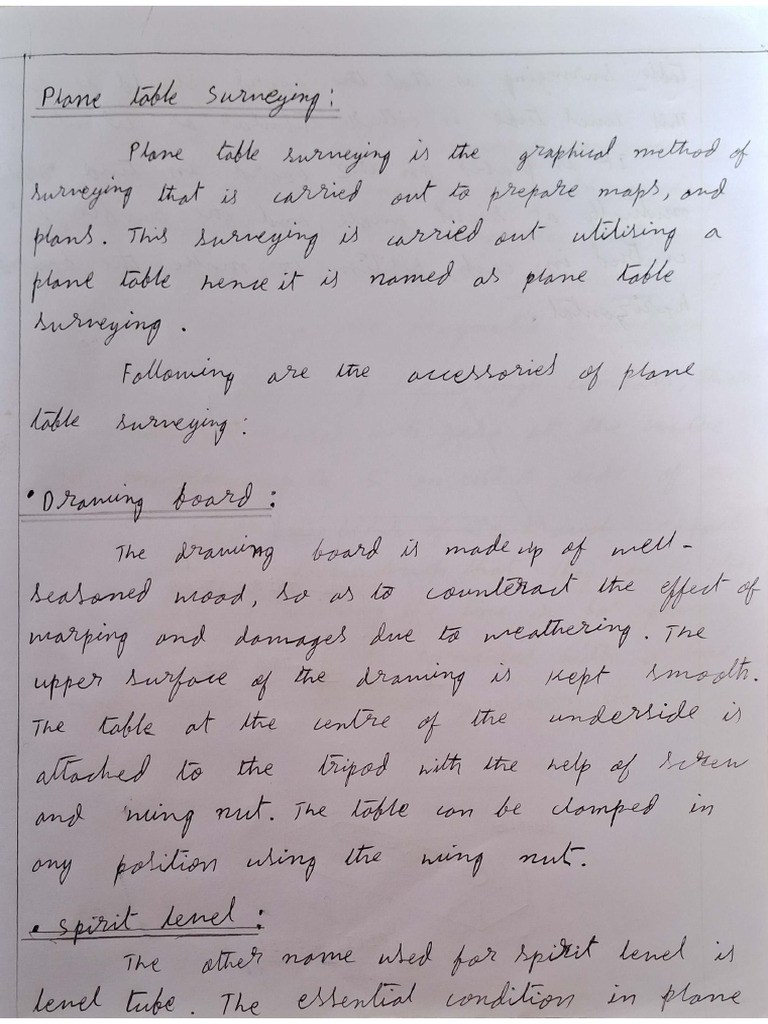 Plane table surveying:
Plane table surveying is the graphical method of
surveying that is carried out to prepare maps, and
plans. This surveying is carried out utilising a
plane table hence it is named as plane table
surveying.
Following are the accessories of plane
table surveying:
• Drawing board:
The drawing board is made up of well-
seasoned wood, so as to counteract the effect of
warping and damages due to weathering. The
upper surface of the drawing is kept smooth.
The table at the centre of the underside is
attached to the tripod with the help of screw
and wing nut. The table can be clamped in
any position using the wing nut.
• Spirit level:
The other name used for spirit level is
level tube. The essential condition in plane